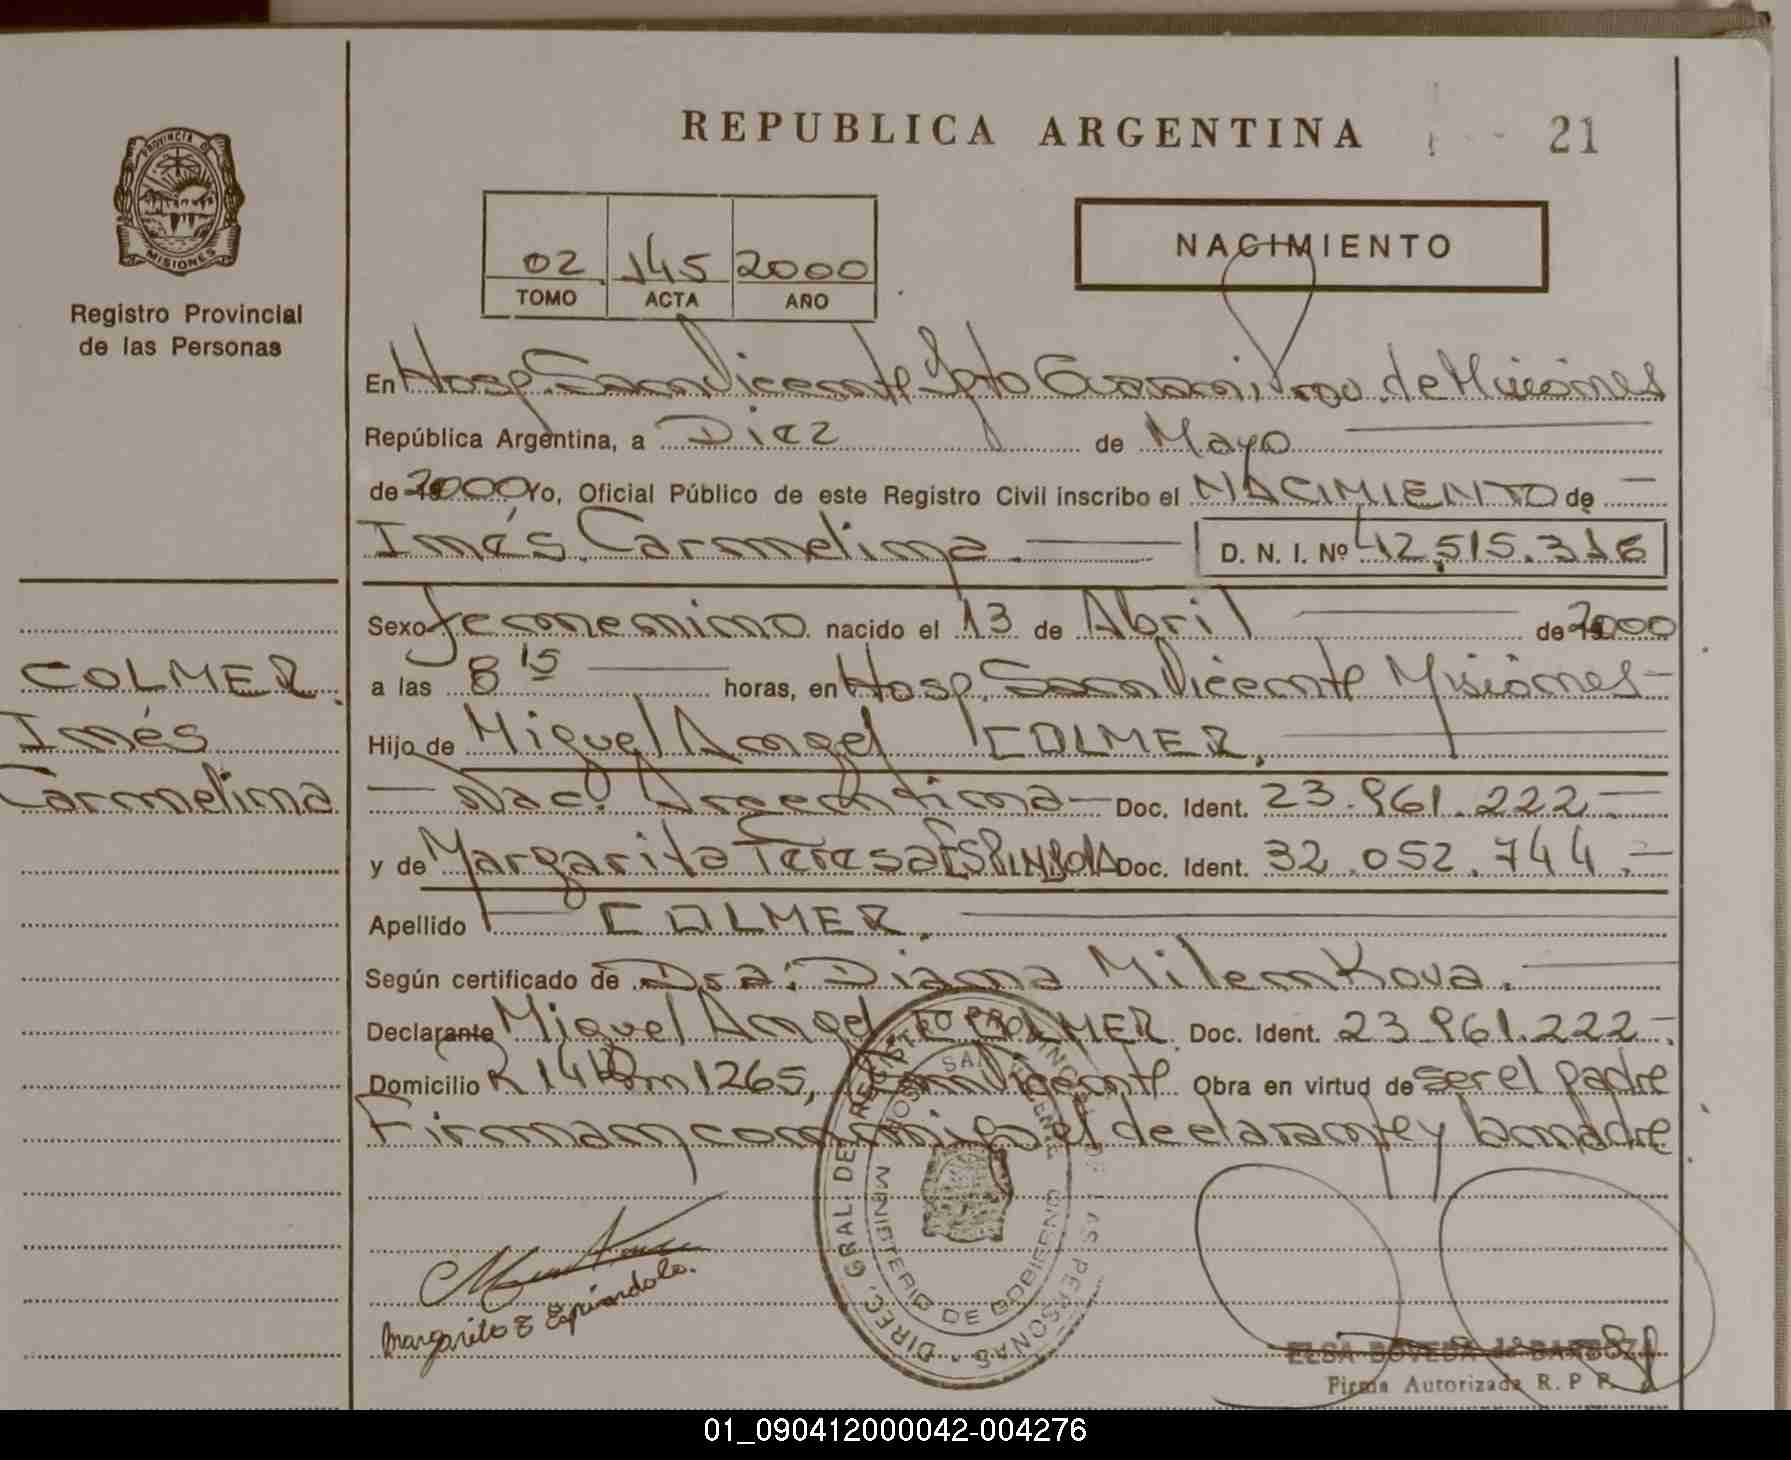 REPUBLICA ARGENTINA
21
PROVINCIA D
MISIONES
Registro Provincial
de las Personas
02 145 2000
TOMO ACTA AÑO
NACIMIENTO
En Hosp. San Vicente Dpto Guarani, Prov. de Misiones
República Argentina, a Diez de Mayo
de 2000 Yo, Oficial Público de este Registro Civil inscribo el NACIMIENTO de
Inés Carmelina D. N. I. Nº 42.515.316
Sexo femenino nacido el 13 de Abril de 2000
a las 8 15 horas, en Hosp. San Vicente Misiones
Hijo de Miguel Angel COLMER.
Nac. Argentina Doc. Ident. 23.961.222
y de Margarita Teresa ESPINDOLA Doc. Ident. 32.052.744
Apellido COLMER.
Según certificado de Dra: Diana Milenkova.
Declarante Miguel Angel COLMER. Doc. Ident. 23.961.222
Domicilio R 14 Km 1265, San Vicente Obra en virtud de ser el padre
Firman conmigo el declarante y la madre
COLMER.
Inés
Carmelina
Margarita T Espindola.
DIREC. GRAL. DE REGISTRO PROVINCIAL DE LAS PERSONAS
HOSP. SAN VICENTE
MINISTERIO DE GOBIERNO
ELSA BOVEDA de BARBOZA
Firma Autorizada R. P. P.
01_090412000042-004276